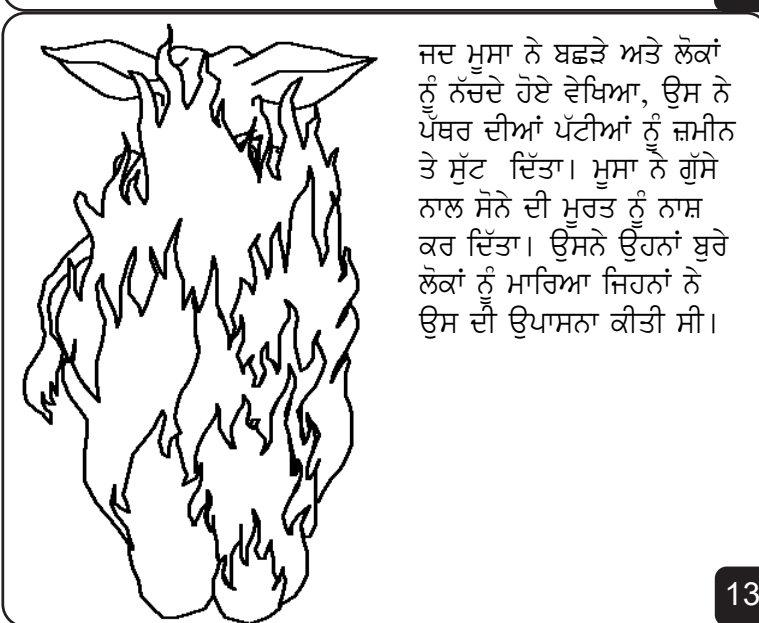 ਜਦ ਮੂਸਾ ਨੇ ਬਛੜੇ ਅਤੇ ਲੋਕਾਂ
ਨੂੰ ਨੱਚਦੇ ਹੋਏ ਵੇਖਿਆ, ਉਸ ਨੇ
ਪੱਥਰ ਦੀਆਂ ਪੱਟੀਆਂ ਨੂੰ ਜ਼ਮੀਨ
ਤੇ ਸੁੱਟ ਦਿੱਤਾ। ਮੂਸਾ ਨੇ ਗੁੱਸੇ
ਨਾਲ ਸੋਨੇ ਦੀ ਮੂਰਤ ਨੂੰ ਨਾਸ਼
ਕਰ ਦਿੱਤਾ। ਉਸਨੇ ਉਹਨਾਂ ਬੁਰੇ
ਲੋਕਾਂ ਨੂੰ ਮਾਰਿਆ ਜਿਹਨਾਂ ਨੇ
ਉਸ ਦੀ ਉਪਾਸਨਾ ਕੀਤੀ ਸੀ।
13